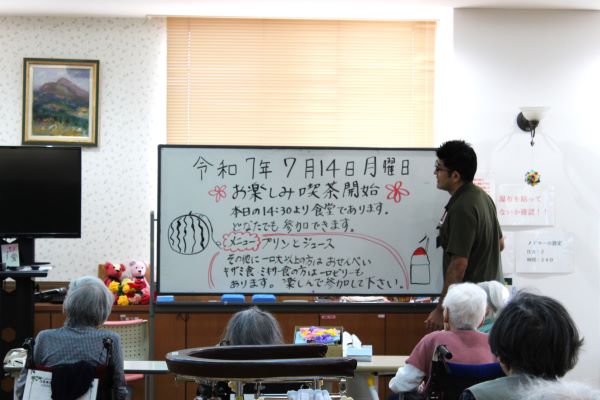 令和7年7月14日月曜日
お楽しみ喫茶開始
本日の14:30より食堂であります。
どなたでも参加できます。
メニュー プリンとジュース
その他に一口大以上の方はおせんべい
キザミ食ミキサー食の方は一口ゼリーも
あります。楽しんで参加して下さい。
湿布を貼って
ないか確認!!